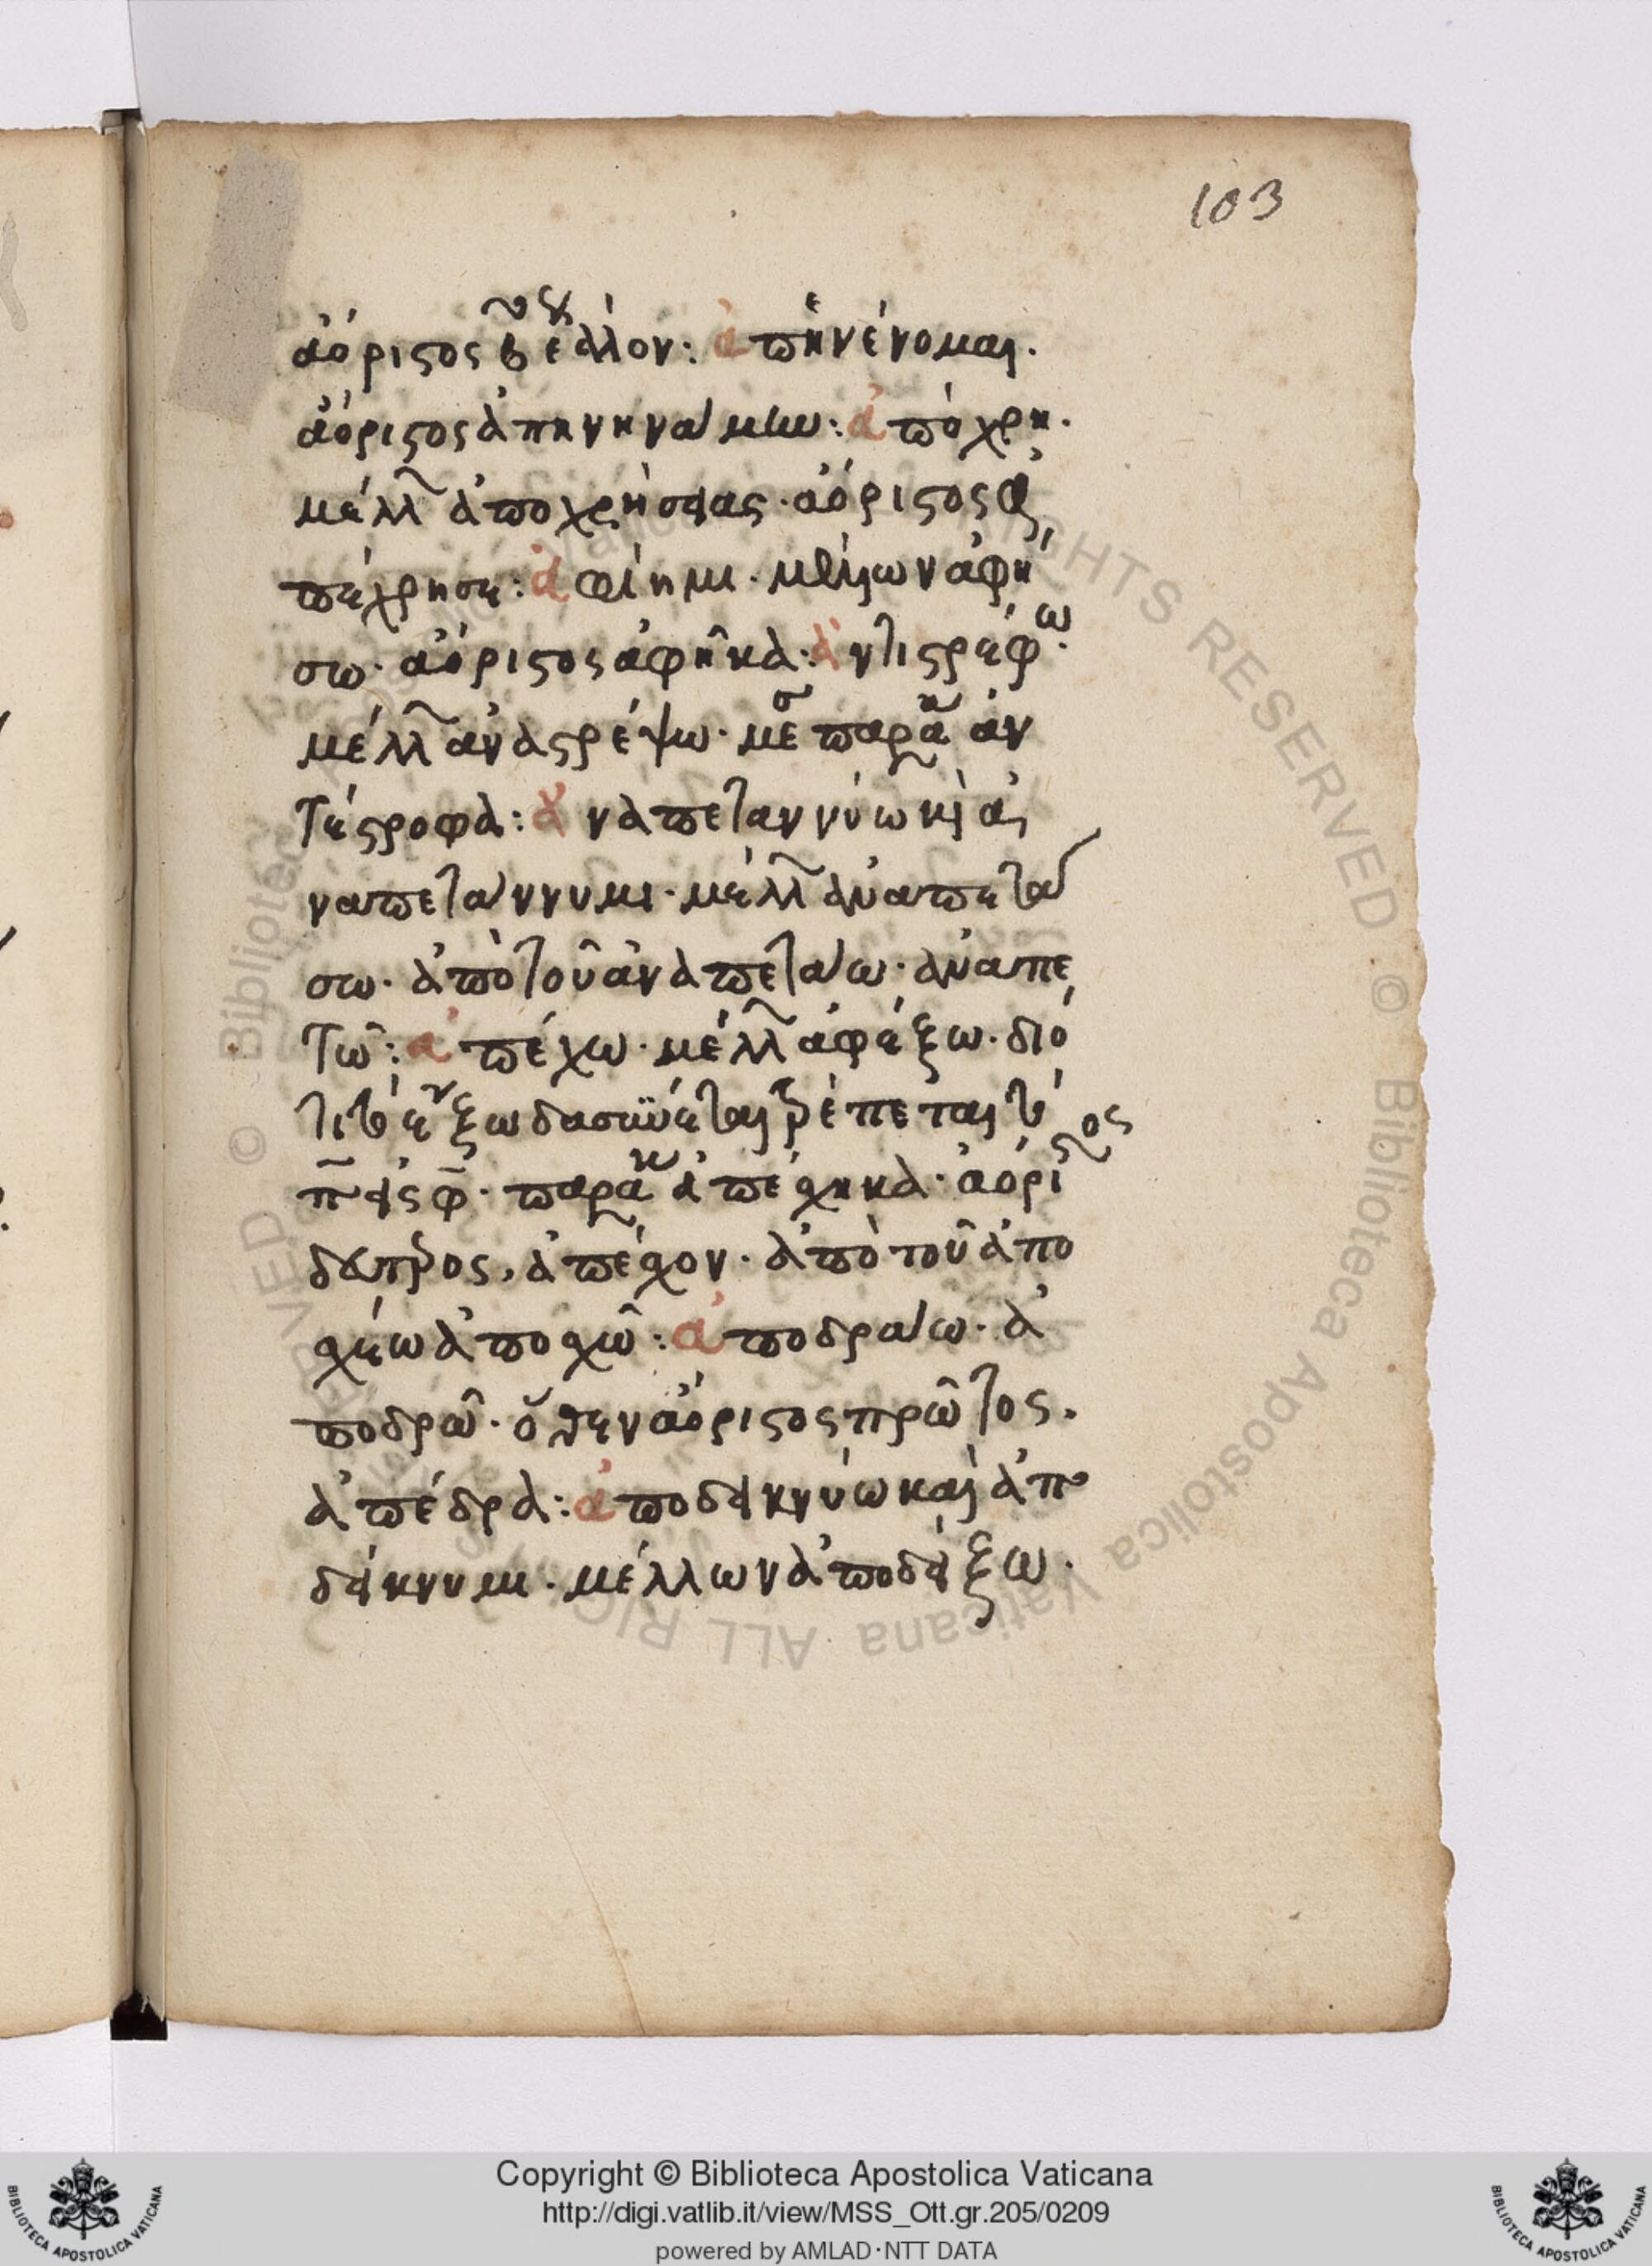 103
ἀόριστος β ἑάλων: ἀπηνένομαι.
ἀόριστος ἀπηνηνάμην: ἀπόχρη.
μέλλ ἀποχρήσειας. ἀόριστος ἀ
πέχρησε: ἀφίημι. μέλλων ἀφή
σω. ἀόριστος ἀφῆκα: ἀντιστρέφω.
μέλλ ἀναστρέψω. μεσ παρακ ἀν
τέστροφα: ἀναπεταννύω καὶ ἀ
ναπετάννυμι. μέλλ ἀναπετά
σω. ἀπὸ τοῦ ἀναπετάω. ἀναπε
τῶ: ἀπέχω. μέλλ ἀφέξω. διό
τι τὸ ἕξω δασύνεται τρέπεται τὸ
π εἰς φ. παρακ ἀπέσχηκα. ἀόριστος
δεύτερος, ἀπέσχον. ἀπὸ τοῦ ἀπο
σχέω ἀποσχῶ: ἀποδράω. ἀ
ποδρῶ. ὅθεν ἀόριστος πρῶτος.
ἀπέδρα: ἀποδεικνύω καὶ ἀπο
δείκνυμι. μέλλων ἀποδείξω.
Copyright © Biblioteca Apostolica Vaticana
http://digi.vatlib.it/view/MSS_Ott.gr.205/0209
powered by AMLAD·NTT DATA
BIBLIOTECA APOSTOLICA VATICANA
BIBLIOTECA APOSTOLICA VATICANA
© Biblioteca Apostolica Vaticana ALL RIGHTS RESERVED